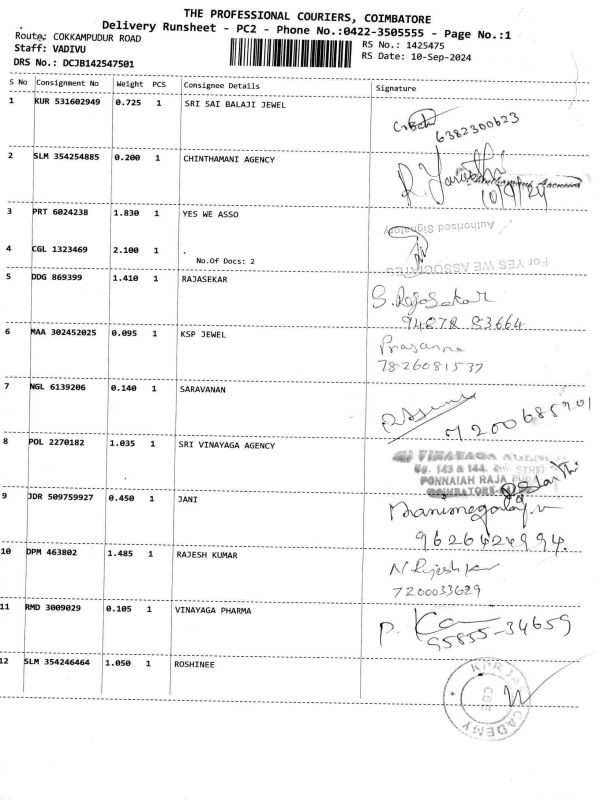 THE PROFESSIONAL COURIERS, COIMBATORE
Delivery Runsheet - PC2 - Phone No.:0422-3505555 - Page No.:1
Route: COKKAMPUDUR ROAD
RS No.: 1425475
Staff: VADIVU
RS Date: 10-Sep-2024
DRS No.: DCJB142547501
S No Consignment No Weight PCS Consignee Details Signature
1 KUR 531602949 0.725 1 SRI SAI BALAJI JEWEL
6382300623
2 SLM 354254885 0.200 1 CHINTHAMANI AGENCY
10/9/24
3 PRT 6024238 1.830 1 YES WE ASSO
Authorised Signatory
4 CGL 1323469 2.100 1 .
No.Of Docs: 2
For YES WE ASSOCIATES
5 DDG 869399 1.410 1 RAJASEKAR
S. RajaSekar
94878 83664
6 MAA 302452025 0.095 1 KSP JEWEL
Prasanna
7826081537
7 NGL 6139206 0.140 1 SARAVANAN
7200685901
8 POL 2270182 1.035 1 SRI VINAYAGA AGENCY
VINAYAGA
No. 143 & 144, STREET
PONNAIAH RAJA PURAM
COIMBATORE
9 JDR 509759927 0.450 1 JANI
9626424994.
10 DPM 463802 1.485 1 RAJESH KUMAR
N Rajesh kumar
7200033629
11 RMD 3009029 0.105 1 VINAYAGA PHARMA
P.
95855-34659
12 SLM 354246464 1.050 1 ROSHINEE
KPR IAS ACADEMY
CBE